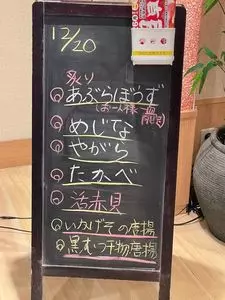 12/20
炙り
◎あぶらぼうず
(お一人様一貫)
◎めじな
◎やがら
◎たかべ
◎活赤貝
◎いかげその唐揚
◎黒むつ干物唐揚